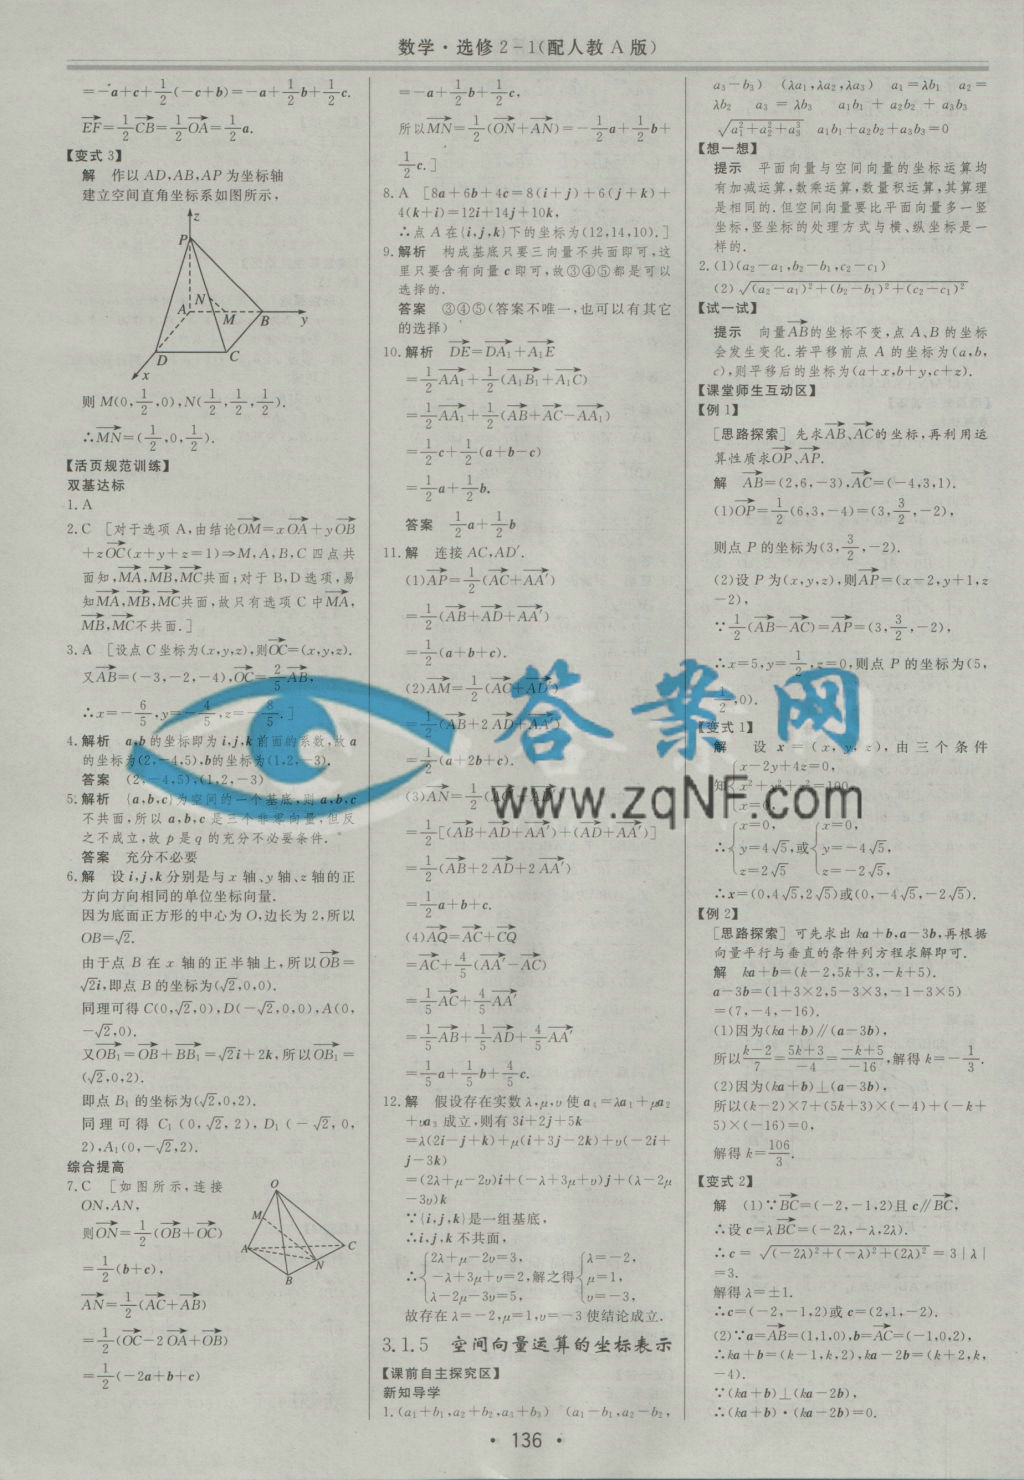 数学·选修2-1(配人教A版)
=-a+c+1/2(-c+b)=-a+1/2b+1/2c.
EF=1/2CB=1/2OA=1/2a.
【变式3】
解 作以AD,AB,AP为坐标轴
建立空间直角坐标系如图所示,
z
P
N
A
M
B
y
D
C
x
则M(0,1/2,0),N(1/2,1/2,1/2).
∴MN=(1/2,0,1/2).
【活页规范训练】
双基达标
1.A
2.C [对于选项A,由结论OM=xOA+yOB
+zOC(x+y+z=1)⇒M,A,B,C四点共
面知,MA,MB,MC共面;对于B,D选项,易
知MA,MB,MC共面,故只有选项C中MA,
MB,MC不共面.]
3.A [设点C坐标为(x,y,z),则OC=(x,y,z).
又AB=(-3,-2,-4),OC=2/5AB,
∴x=-6/5,y=-4/5,z=-8/5.]
4.解析 a,b的坐标即为i,j,k前面的系数,故a
的坐标为(2,-4,5),b的坐标为(1,2,-3).
答案 (2,-4,5),(1,2,-3)
5.解析 {a,b,c}为空间的一个基底,则a,b,c
不共面,所以a,b,c是三个非零向量,但反
之不成立,故p是q的充分不必要条件.
答案 充分不必要
6.解 设i,j,k分别是与x轴、y轴、z轴的正
方向方向相同的单位坐标向量.
因为底面正方形的中心为O,边长为2,所以
OB=√2.
由于点B在x轴的正半轴上,所以OB=
√2i,即点B的坐标为(√2,0,0).
同理可得C(0,√2,0),D(-√2,0,0),A(0,
-√2,0).
又OB₁=OB+BB₁=√2i+2k,所以OB₁=
(√2,0,2).
即点B₁的坐标为(√2,0,2).
同理可得C₁(0,√2,2),D₁(-√2,0,
2),A₁(0,-√2,2).
综合提高
7.C [如图所示,连接
ON,AN,
则ON=1/2(OB+OC)
=1/2(b+c),
AN=1/2(AC+AB)
=1/2(OC-2OA+OB)
=1/2(-2a+b+c)
O
M
A
C
N
B
=-a+1/2b+1/2c,
所以MN=1/2(ON+AN)=-1/2a+1/2b+
1/2c.]
8.A [8a+6b+4c=8(i+j)+6(j+k)+
4(k+i)=12i+14j+10k,
∴点A在{i,j,k}下的坐标为(12,14,10).]
9.解析 构成基底只要三向量不共面即可,这
里只要含有向量c即可,故③④⑤都是可以
选择的.
答案 ③④⑤(答案不唯一,也可以有其它
的选择)
10.解析 DE=DA₁+A₁E
=1/2AA₁+1/2(A₁B₁+A₁C)
=1/2AA₁+1/2(AB+AC-AA₁)
=1/2c+1/2(a+b-c)
=1/2a+1/2b.
答案 1/2a+1/2b
11.解 连接AC,AD′.
(1)AP=1/2(AC+AA′)
=1/2(AB+AD+AA′)
=1/2(a+b+c).
(2)AM=1/2(AC+AD′)
=1/2(AB+2AD+AA′)
=1/2(a+2b+c).
(3)AN=1/2(AC′+AD′)
=1/2[(AB+AD+AA′)+(AD+AA′)]
=1/2(AB+2AD+2AA′)
=1/2a+b+c.
(4)AQ=AC+CQ
=AC+4/5(AA′-AC)
=1/5AC+4/5AA′
=1/5AB+1/5AD+4/5AA′
=1/5a+1/5b+4/5c.
12.解 假设存在实数λ,μ,υ使a₄=λa₁+μa₂
+υa₃成立,则有3i+2j+5k
=λ(2i-j+k)+μ(i+3j-2k)+υ(-2i+
j-3k)
=(2λ+μ-2υ)i+(-λ+3μ+υ)j+(λ-2μ
-3υ)k
∵{i,j,k}是一组基底,
∴i,j,k不共面,
2λ+μ-2υ=3, λ=-2,
∴ -λ+3μ+υ=2,解之得 μ=1,
λ-2μ-3υ=5, υ=-3,
故存在λ=-2,μ=1,υ=-3使结论成立.
3.1.5 空间向量运算的坐标表示
【课前自主探究区】
新知导学
1.(a₁+b₁,a₂+b₂,a₃+b₃) (a₁-b₁,a₂-b₂,
a₃-b₃) (λa₁,λa₂,λa₃) a₁=λb₁ a₂=
λb₂ a₃=λb₃ a₁b₁+a₂b₂+a₃b₃
√(a₁²+a₂²+a₃²) a₁b₁+a₂b₂+a₃b₃=0
【想一想】
提示 平面向量与空间向量的坐标运算均
有加减运算,数乘运算,数量积运算,其算理
是相同的.但空间向量要比平面向量多一竖
坐标,竖坐标的处理方式与横、纵坐标是一
样的.
2.(1)(a₂-a₁,b₂-b₁,c₂-c₁)
(2)√((a₂-a₁)²+(b₂-b₁)²+(c₂-c₁)²)
【试一试】
提示 向量AB的坐标不变,点A、B的坐标
会发生变化.若平移前点A的坐标为(a,b,
c),则平移后的坐标为(a+x,b+y,c+z).
【课堂师生互动区】
【例1】
[思路探索] 先求AB、AC的坐标,再利用运
算性质求OP、AP.
解 AB=(2,6,-3),AC=(-4,3,1).
(1)OP=1/2(6,3,-4)=(3,3/2,-2),
则点P的坐标为(3,3/2,-2).
(2)设P为(x,y,z),则AP=(x-2,y+1,z
-2),
∵1/2(AB-AC)=AP=(3,3/2,-2),
∴x=5,y=1/2,z=0,则点P的坐标为(5,
1/2,0).
【变式1】
解 设x=(x,y,z),由三个条件
x-2y+4z=0,
知 x²+y²+z²=100,
x=0,
x=0, x=0,
∴ y=4√5,或 y=-4√5,
z=2√5 z=-2√5,
∴x=(0,4√5,2√5)或(0,-4√5,-2√5).
【例2】
[思路探索] 可先求出ka+b,a-3b,再根据
向量平行与垂直的条件列方程求解即可.
解 ka+b=(k-2,5k+3,-k+5).
a-3b=(1+3×2,5-3×3,-1-3×5)
=(7,-4,-16).
(1)因为(ka+b)∥(a-3b),
所以(k-2)/7=(5k+3)/-4=(-k+5)/-16,解得k=-1/3.
(2)因为(ka+b)⊥(a-3b),
所以(k-2)×7+(5k+3)×(-4)+(-k+
5)×(-16)=0,
解得k=106/3.
【变式2】
解 (1)∵BC=(-2,-1,2)且c∥BC,
∴设c=λBC=(-2λ,-λ,2λ).
∴c=√((-2λ)²+(-λ)²+(2λ)²)=3|λ|
=3.
解得λ=±1.
∴c=(-2,-1,2)或c=(2,1,-2).
(2)∵a=AB=(1,1,0),b=AC=(-1,0,2),
∴ka+b=(k-1,k,2),ka-2b=(k+2,k,
-4).
∵(ka+b)⊥(ka-2b),
∴(ka+b)·(ka-2b)=0.
·136·
答案网
www.zqNF.com